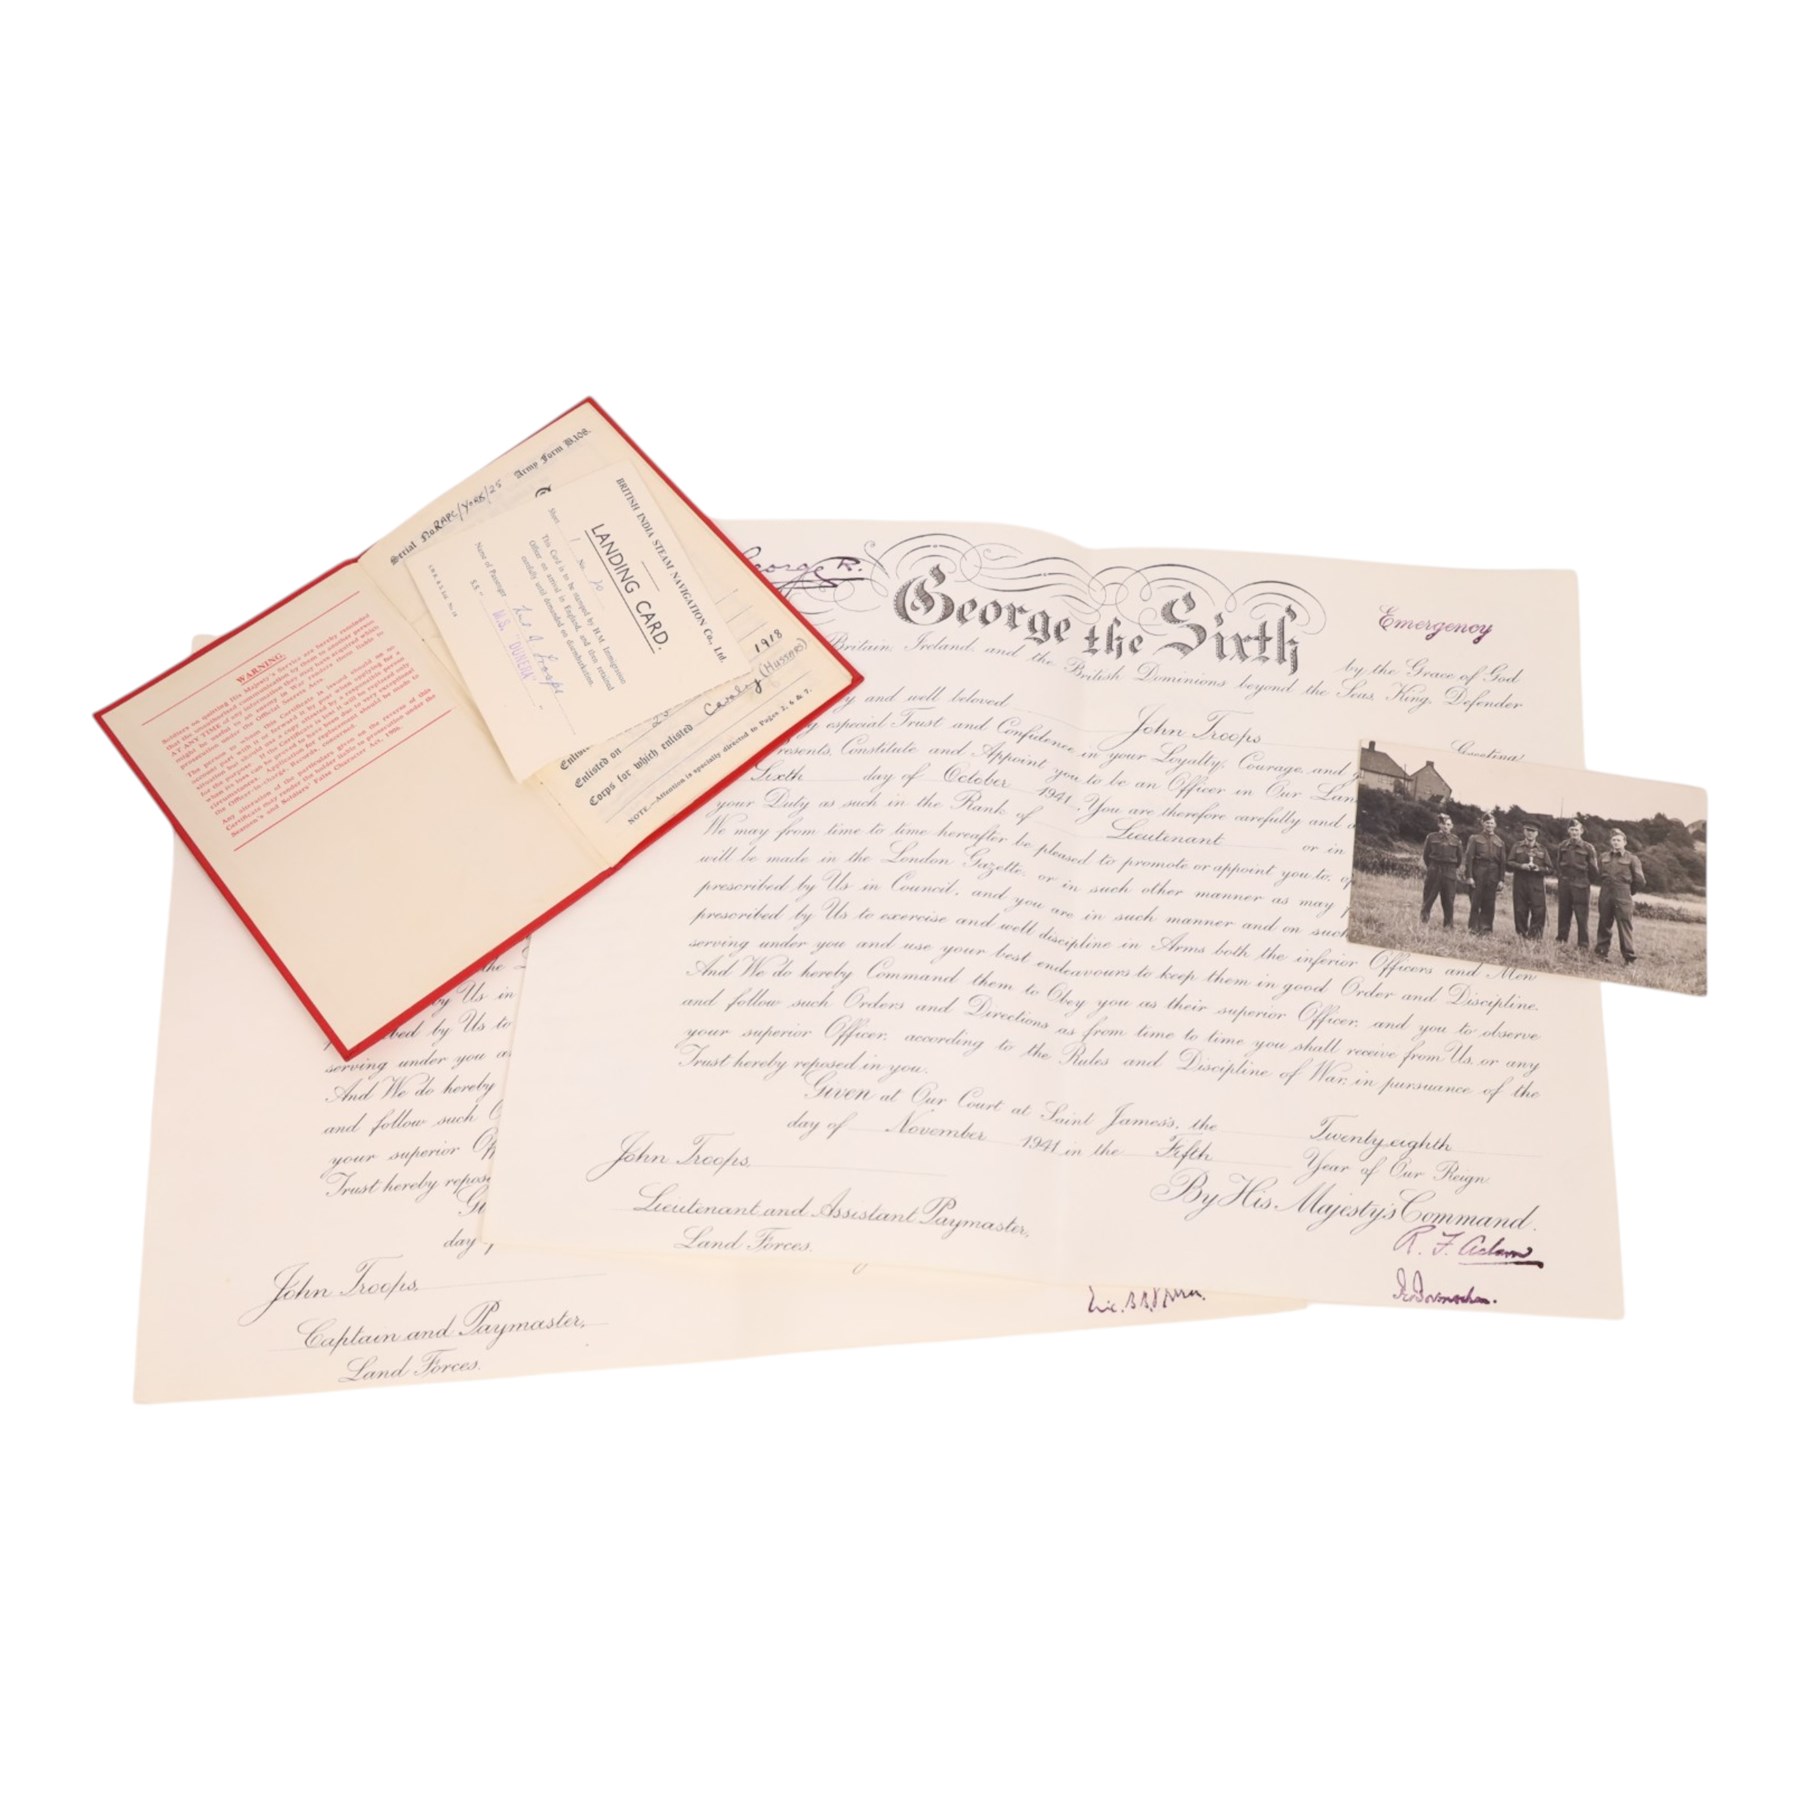 WARNING.
Soldiers on quitting His Majesty's Service are hereby reminded
that the unauthorised communication by them to another person
AT ANY TIME of any information they may have acquired which
might be useful to an enemy in War renders them liable to
prosecution under the Official Secrets Acts.
Serial No RAPC/YORK/25 Army Form B.108.
BRITISH INDIA STEAM NAVIGATION Co., Ltd.
LANDING CARD.
Sheet 1 No. 20
This Card is to be stamped by H.M. Immigration
Officer on arrival in England, and then retained
carefully until demanded on disembarkation.
Name of Passenger Lt J Troops
S.S. H.S. "DUNERA"
1918
Enlisted on
Corps for which enlisted Cavalry (Hussars)
NOTE.—Attention is specially directed to Pages 2, 6 & 7.
George R.
George the Sixth
Emergency
by the Grace of God
Britain, Ireland and the British Dominions beyond the Seas, King, Defender
and well beloved John Troops Greeting
especial Trust and Confidence in your Loyalty, Courage, and
Presents, Constitute and Appoint you to be an Officer in Our Lan
Sixth day of October 1941. You are therefore carefully and
your Duty as such in the Rank of Lieutenant or in
We may from time to time hereafter be pleased to promote or appoint you to, of
will be made in the London Gazette, or in such other manner as may
prescribed by Us in Council, and you are in such manner and on such
prescribed by Us to exercise and well discipline in Arms both the inferior Officers and Men
serving under you and use your best endeavours to keep them in good Order and Discipline.
And We do hereby Command them to Obey you as their superior Officer, and you to observe
and follow such Orders and Directions as from time to time you shall receive from Us, or any
your superior Officer, according to the Rules and Discipline of War, in pursuance of the
Trust hereby reposed in you.
Given at Our Court at Saint James's, the Twenty-eighth
day of November 1941 in the Fifth Year of Our Reign.
By His Majesty's Command.
John Troops,
Lieutenant and Assistant Paymaster,
Land Forces.
R. F. Adam
the
by Us in
bed by Us to
serving under you a
And We do hereby
and follow such O
your superior Of
Trust hereby repos
Gi
day
John Troops,
Captain and Paymaster,
Land Forces.